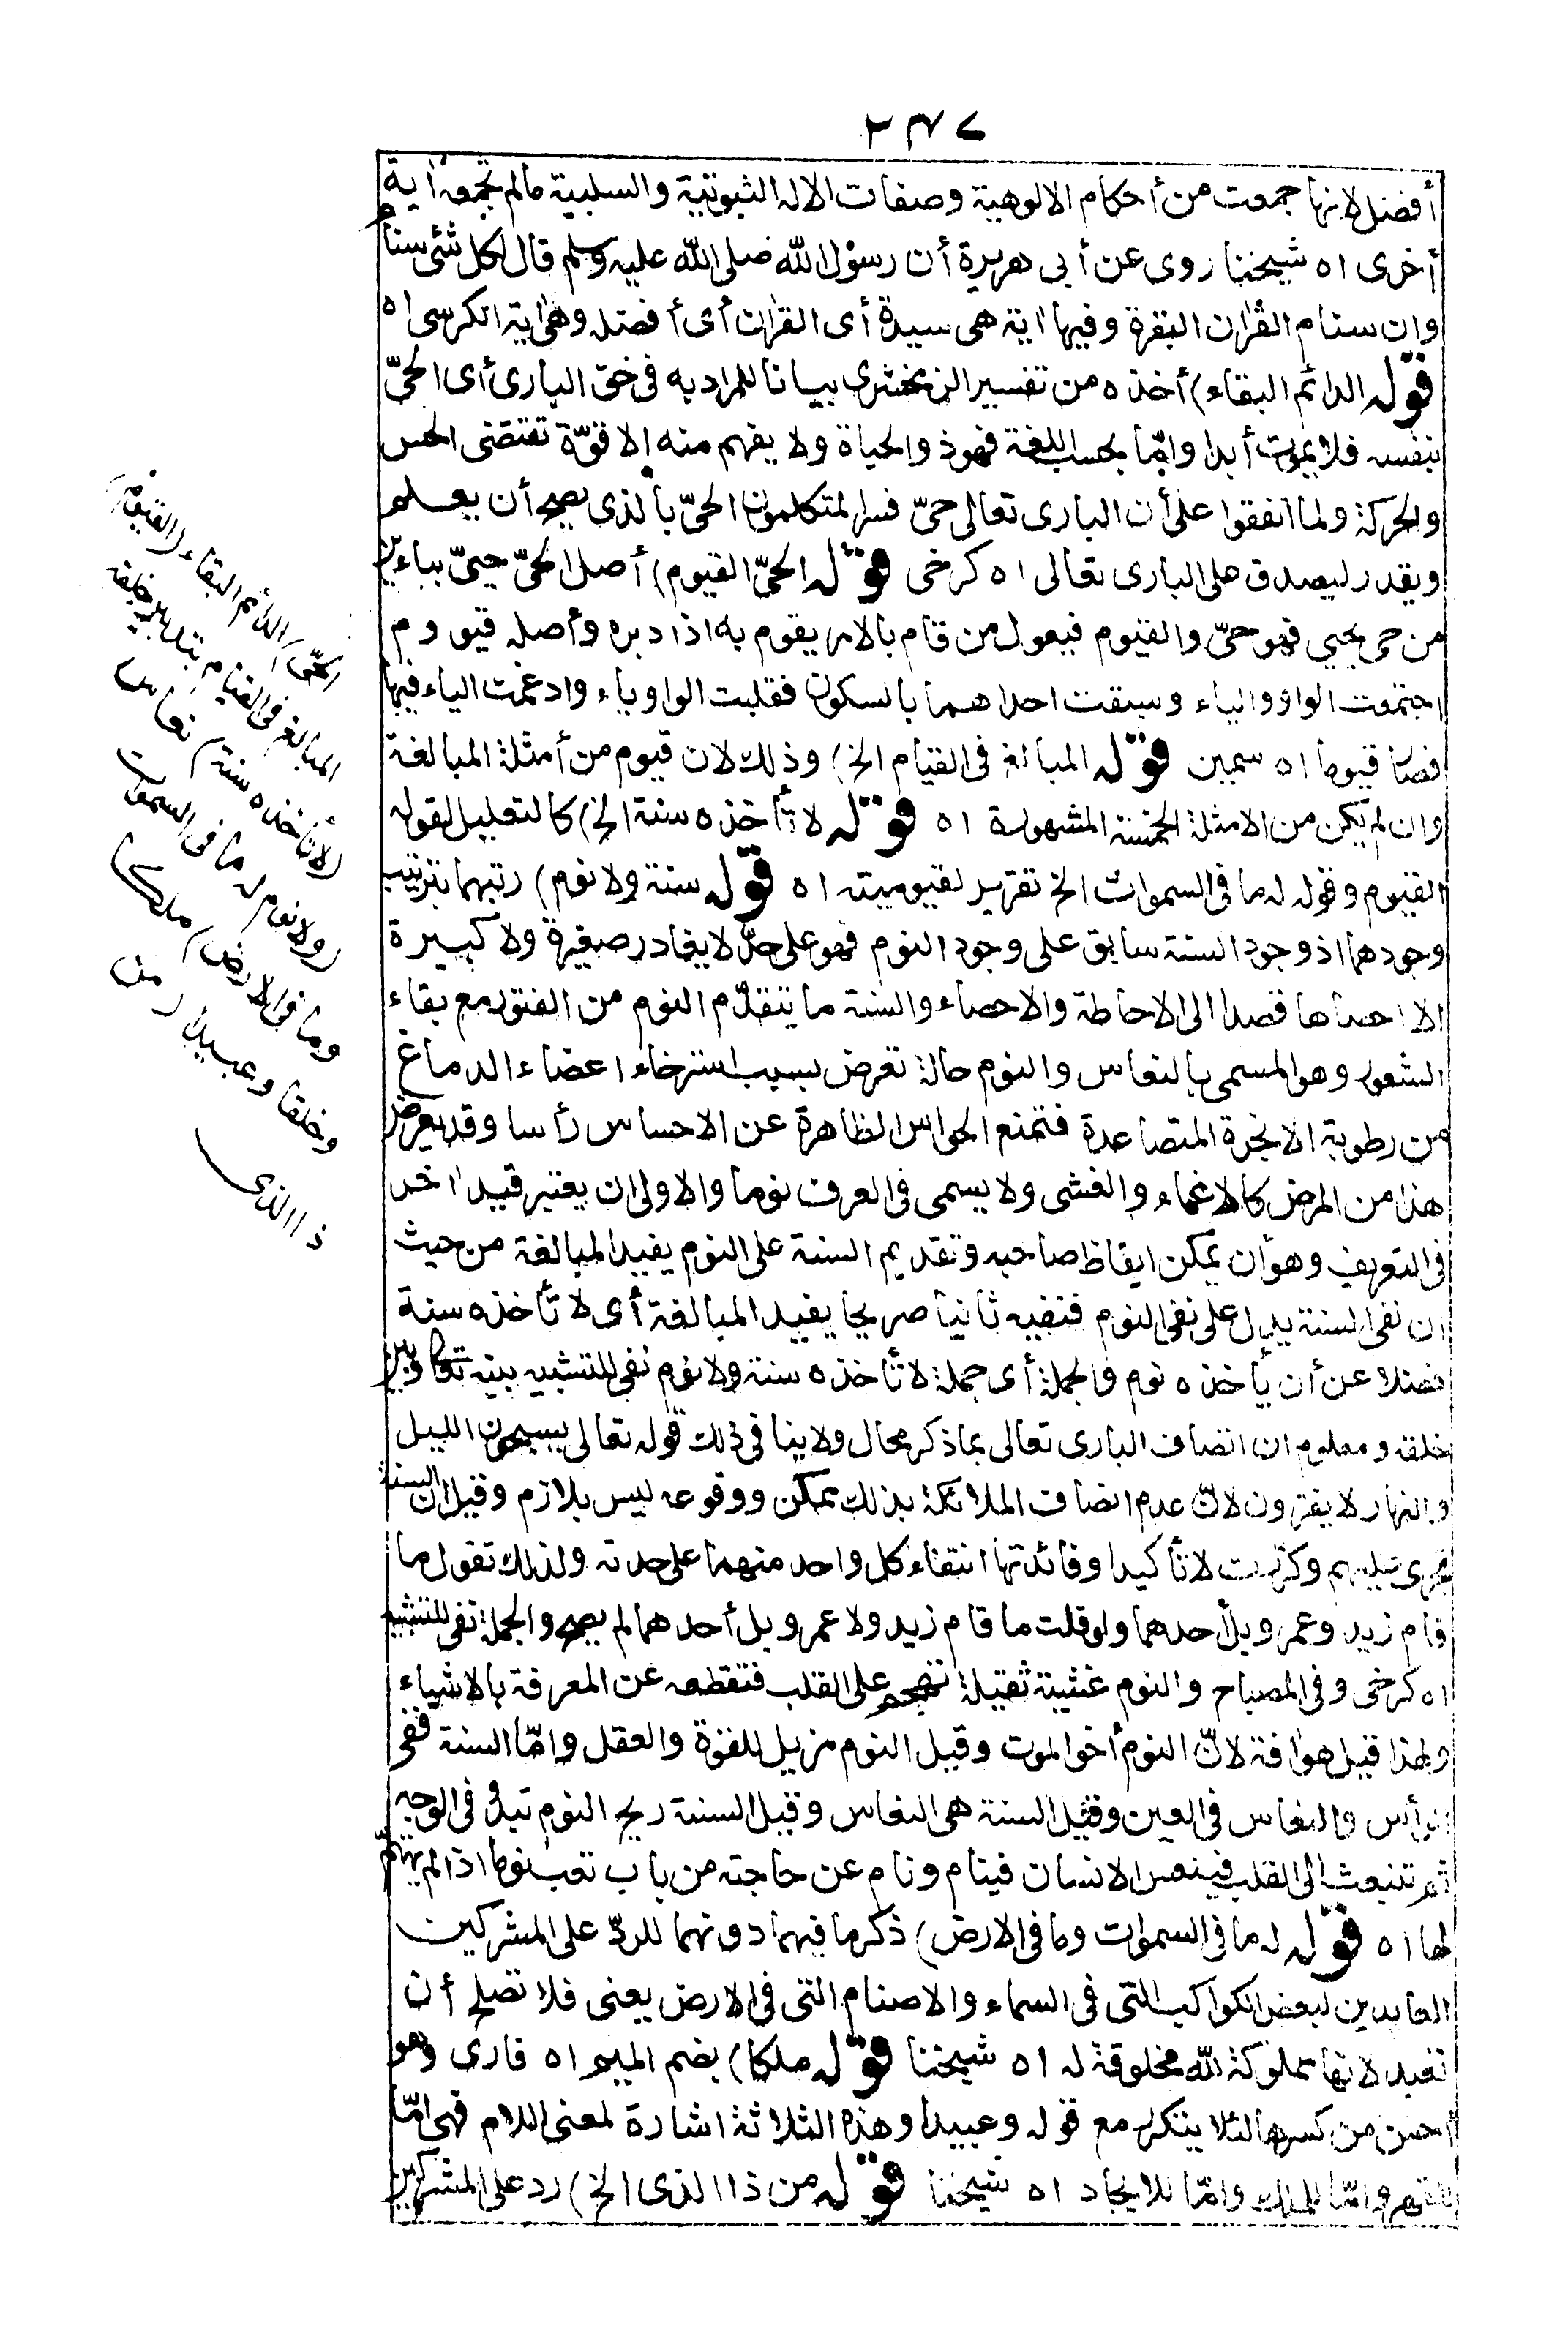 ٢٤٧
أفضل لانها جمعت من أحكام الالوهية وصفات الاله الثبوتية والسلبية مالم تجمعه اية
أخرى اه شيخنا روى عن أبى هريرة أن رسول الله صلى الله عليه وسلم قال لكل شئ سنام
وان سنام القران البقرة وفيها اية هى سيدة أى القران أى أفضله وهى اية الكرسى اه
قوله الدائم البقاء) أخذه من تفسير الزمخشرى بيانا للمراد به فى حق البارى أى الحىّ
بنفسه فلا يموت أبدا وامّا بحسب اللغة فهو ذو الحياة ولا يفهم منه الا قوّة تقتضى الحس
والحركة ولما اتفقوا على أن البارى تعالى حىّ فسر المتكلمون الحىّ بالذى يصح أن يعلم
ويقدر ليصدق على البارى تعالى اه كرخى قوله الحىّ القيوم) أصل الحىّ حيىّ بياءين
من حى يحيى فهو حىّ والقيوم فيعول من قام بالامر يقوم به اذا دبره وأصله قيووم
اجتمعت الواو والياء وسبقت احداهما بالسكون فقلبت الواو ياء وادغمت الياء فيها
فصار قيوما اه سمين قوله المبالغ فى القيام الخ) وذلك لان قيوم من أمثلة المبالغة
وان لم يكن من الامثلة الخمسة المشهورة اه قوله لا تأخذه سنة الخ) كالتعليل لقوله
القيوم وقوله له ما فى السموات الخ تقرير لقيوميته اه قوله سنة ولا نوم) رتبهما بترتيب
وجودهما اذ وجود السنة سابق على وجود النوم فهو على حدّ لا يغادر صغيرة ولا كبيرة
الا احصاها قصدا الى الاحاطة والاحصاء والسنة ما يتقدّم النوم من الفتور مع بقاء
الشعور وهو المسمى بالنعاس والنوم حالة تعرض بسبب استرخاء اعضاء الدماغ
من رطوبة الابخرة المتصاعدة فتمنع الحواس الظاهرة عن الاحساس رأسا وقد يعرض
هذا من المرض كالاغماء والغشى ولا يسمى فى العرف نوما والاولى ان يعتبر قيد اخر
فى التعريف وهو أن يمكن ايقاظ صاحبه وتقديم السنة على النوم يفيد المبالغة من حيث
ان نفى السنة يدل على نفى النوم فنفيه ثانيا صريحا يفيد المبالغة أى لا تأخذه سنة
فضلا عن أن يأخذه نوم والجملة أى جملة لا تأخذه سنة ولا نوم نفى للتشبيه بينه تعالى وبين
خلقه ومعلوم ان اتصاف البارى تعالى بما ذكر محال ولا ينافى ذلك قوله تعالى يسبحون الليل
والنهار لا يفترون لانّ عدم اتصاف الملائكة بذلك ممكن ووقوعه ليس بلازم وقيل ان السنة
عليهم وكررت لا تأكيدا وفائدتها انتفاء كل واحد منهما على حدته ولذلك تقول ما
قام زيد وعمرو بل أحدهما ولو قلت ما قام زيد ولا عمرو بل أحدهما لم يصح والجملة نفى للتشبيه
اه كرخى وفى المصباح والنوم غشية ثقيلة تهجم على القلب فتقطعه عن المعرفة بالاشياء
ولهذا قيل هو افة لانّ النوم أخو الموت وقيل النوم مزيل للقوة والعقل وامّا السنة ففى
الرأس والنعاس فى العين وقيل السنة هى النعاس وقيل السنة ريح النوم تبدو فى الوجه
ثم تنبعث الى القلب فينعس الانسان فينام ونام عن حاجته من باب تعب نوما اذا لم يهتمّ
لها اه قوله له ما فى السموات وما فى الارض) ذكر ما فيهما دونهما للردّ على المشركين
العابدين لبعض الكواكب التى فى السماء والاصنام التى فى الارض يعنى فلا تصلح أن
تعبد لانها مملوكة لله مخلوقة له اه شيخنا قوله ملكا) بضم الميم اه قارى وهو
أحسن من كسرها لئلا يتكرر مع قوله وعبيدا وهذه الثلاثة اشارة لمعنى اللام فهى امّا
للقهر وامّا للملك وامّا للايجاد اه شيخنا قوله من ذا الذى الخ) رد على المشركين
الحىّ) الدائم البقاء (القيوم)
المبالغ فى القيام بتدبير خلقه
(لا تأخذه سنة) نعاس
(ولا نوم له ما فى السموات
وما فى الارض) ملكا
وخلقا وعبيدا (من
ذا الذى